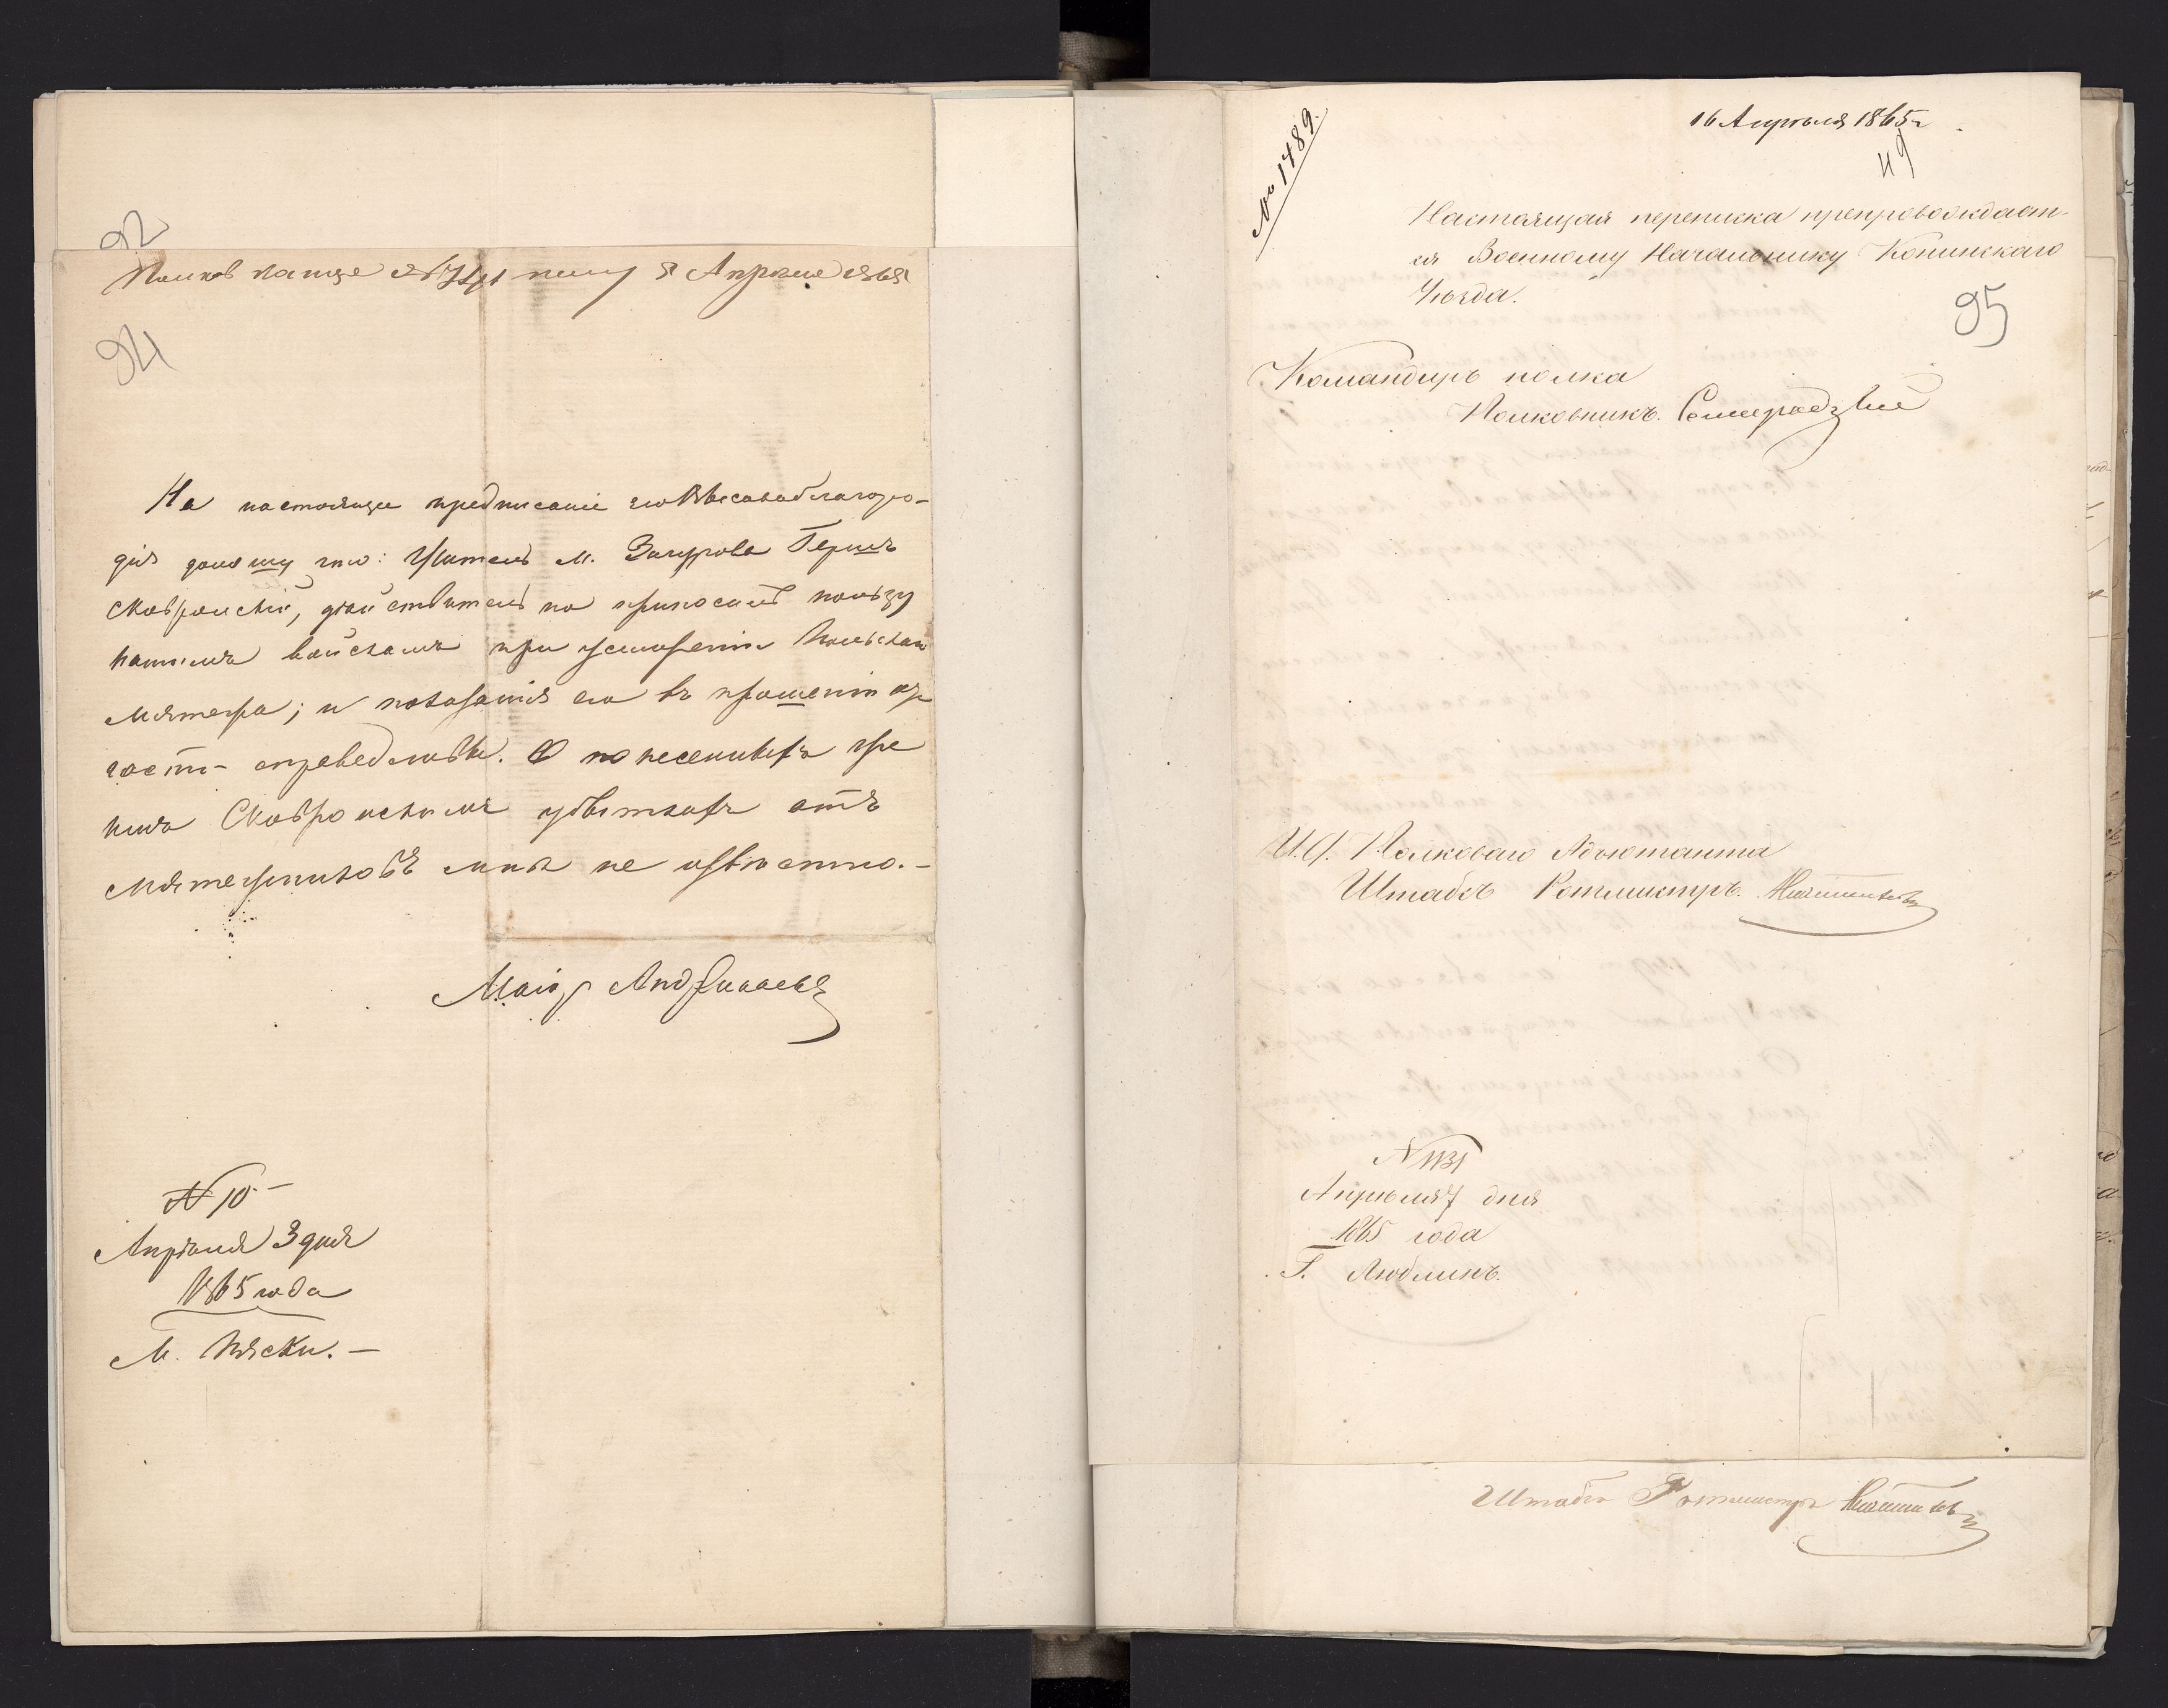 92
Апреля 1865
94
На настоящее предписание его Высокоблагоро-
дія доношу что: Житель м. Загурова Гершъ
Скавронскій, действительно приносилъ пользу
нашимъ войскамъ при усмиреніи Польскаго
мятежа; и показанія его въ прошеніи
часті справедливы. О понесенныхъ
Скавронскимъ убыткахъ отъ
мятежниковъ мне не известно.-
Маіоръ
N 10-
Апреля 3 дня
1865 года
М. Пяски.-
№ 1489.
16 Апреля 1865 г.
49
Настоящая переписка препровождает-
ся Военному Начальнику Конинскаго
Уезда.
95
Командиръ полка
Полковникъ.
И. д. Полковаго Адъютанта
Штабсъ Ротмистръ.
N 1131
Апреля 7 дня
1865 года
Г. Люблинъ.
Штабсъ Ротмистръ